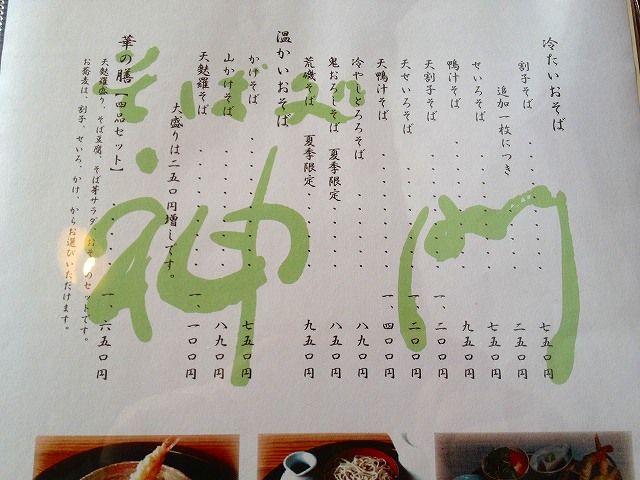 冷たいおそば
割子そば・・・・・・・・七五〇円
追加一枚につき・・・・二五〇円
せいろそば・・・・・・・七五〇円
鴨汁そば・・・・・・・・九五〇円
天割子そば・・・・・・一、二〇〇円
天せいろそば・・・・・一、二〇〇円
天鴨汁そば・・・・・・一、四〇〇円
冷やしとろろそば・・・・八九〇円
鬼おろしそば 夏季限定・・八五〇円
荒磯そば 夏季限定・・・・九五〇円
温かいおそば
かけそば・・・・・・・・七五〇円
山かけそば・・・・・・・八九〇円
天麩羅そば・・・・・・一、一〇〇円
大盛りは二五〇円増しです。
華の膳【四品セット】・・・・一、六五〇円
天麩羅盛り、そば豆腐、そば芽サラダ、おそばのセットです。
お蕎麦は、割子、せいろ、かけ、からお選びいただけます。
そば処
神門